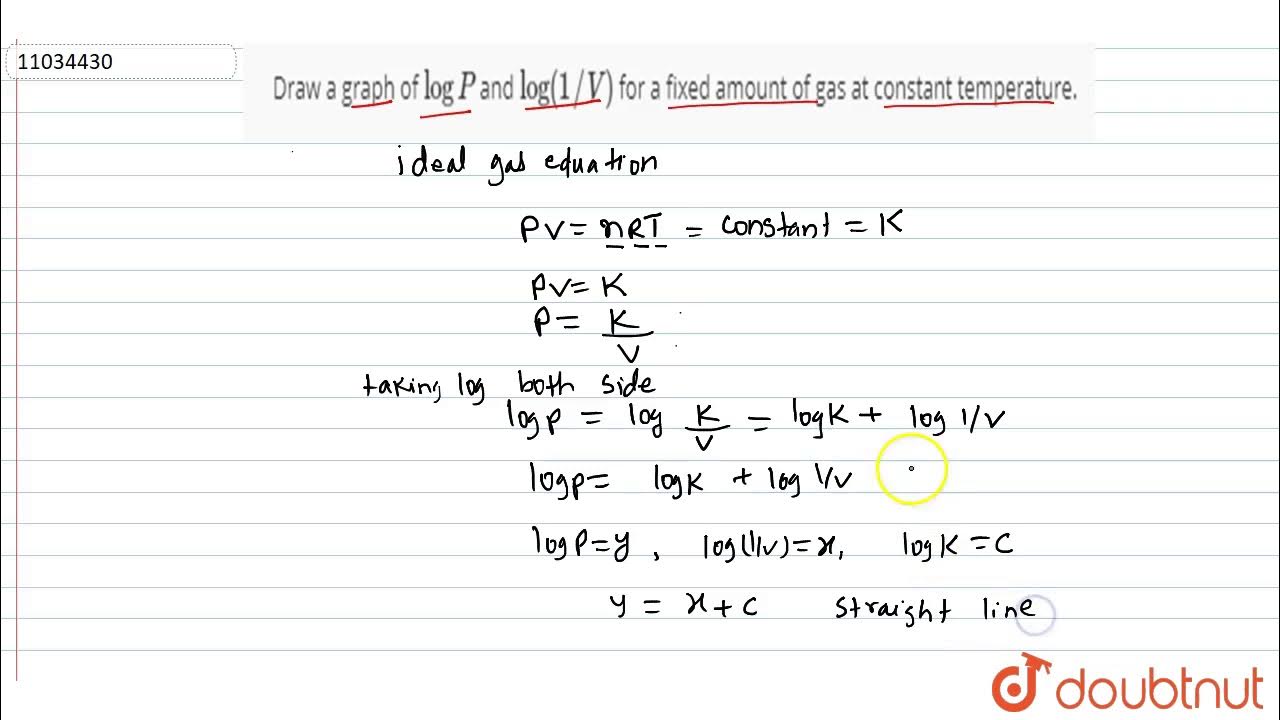 11034430
Draw a graph of log P and log(1/V) for a fixed amount of gas at constant temperature.
ideal gas equation
PV = nRT = constant = K
PV = K
P = K/V
taking log both side
log P = log K/V = log K + log 1/V
log P = log K + log 1/V
log P = y, log(1/V) = x, log K = C
y = x + c straight line
doubtnut